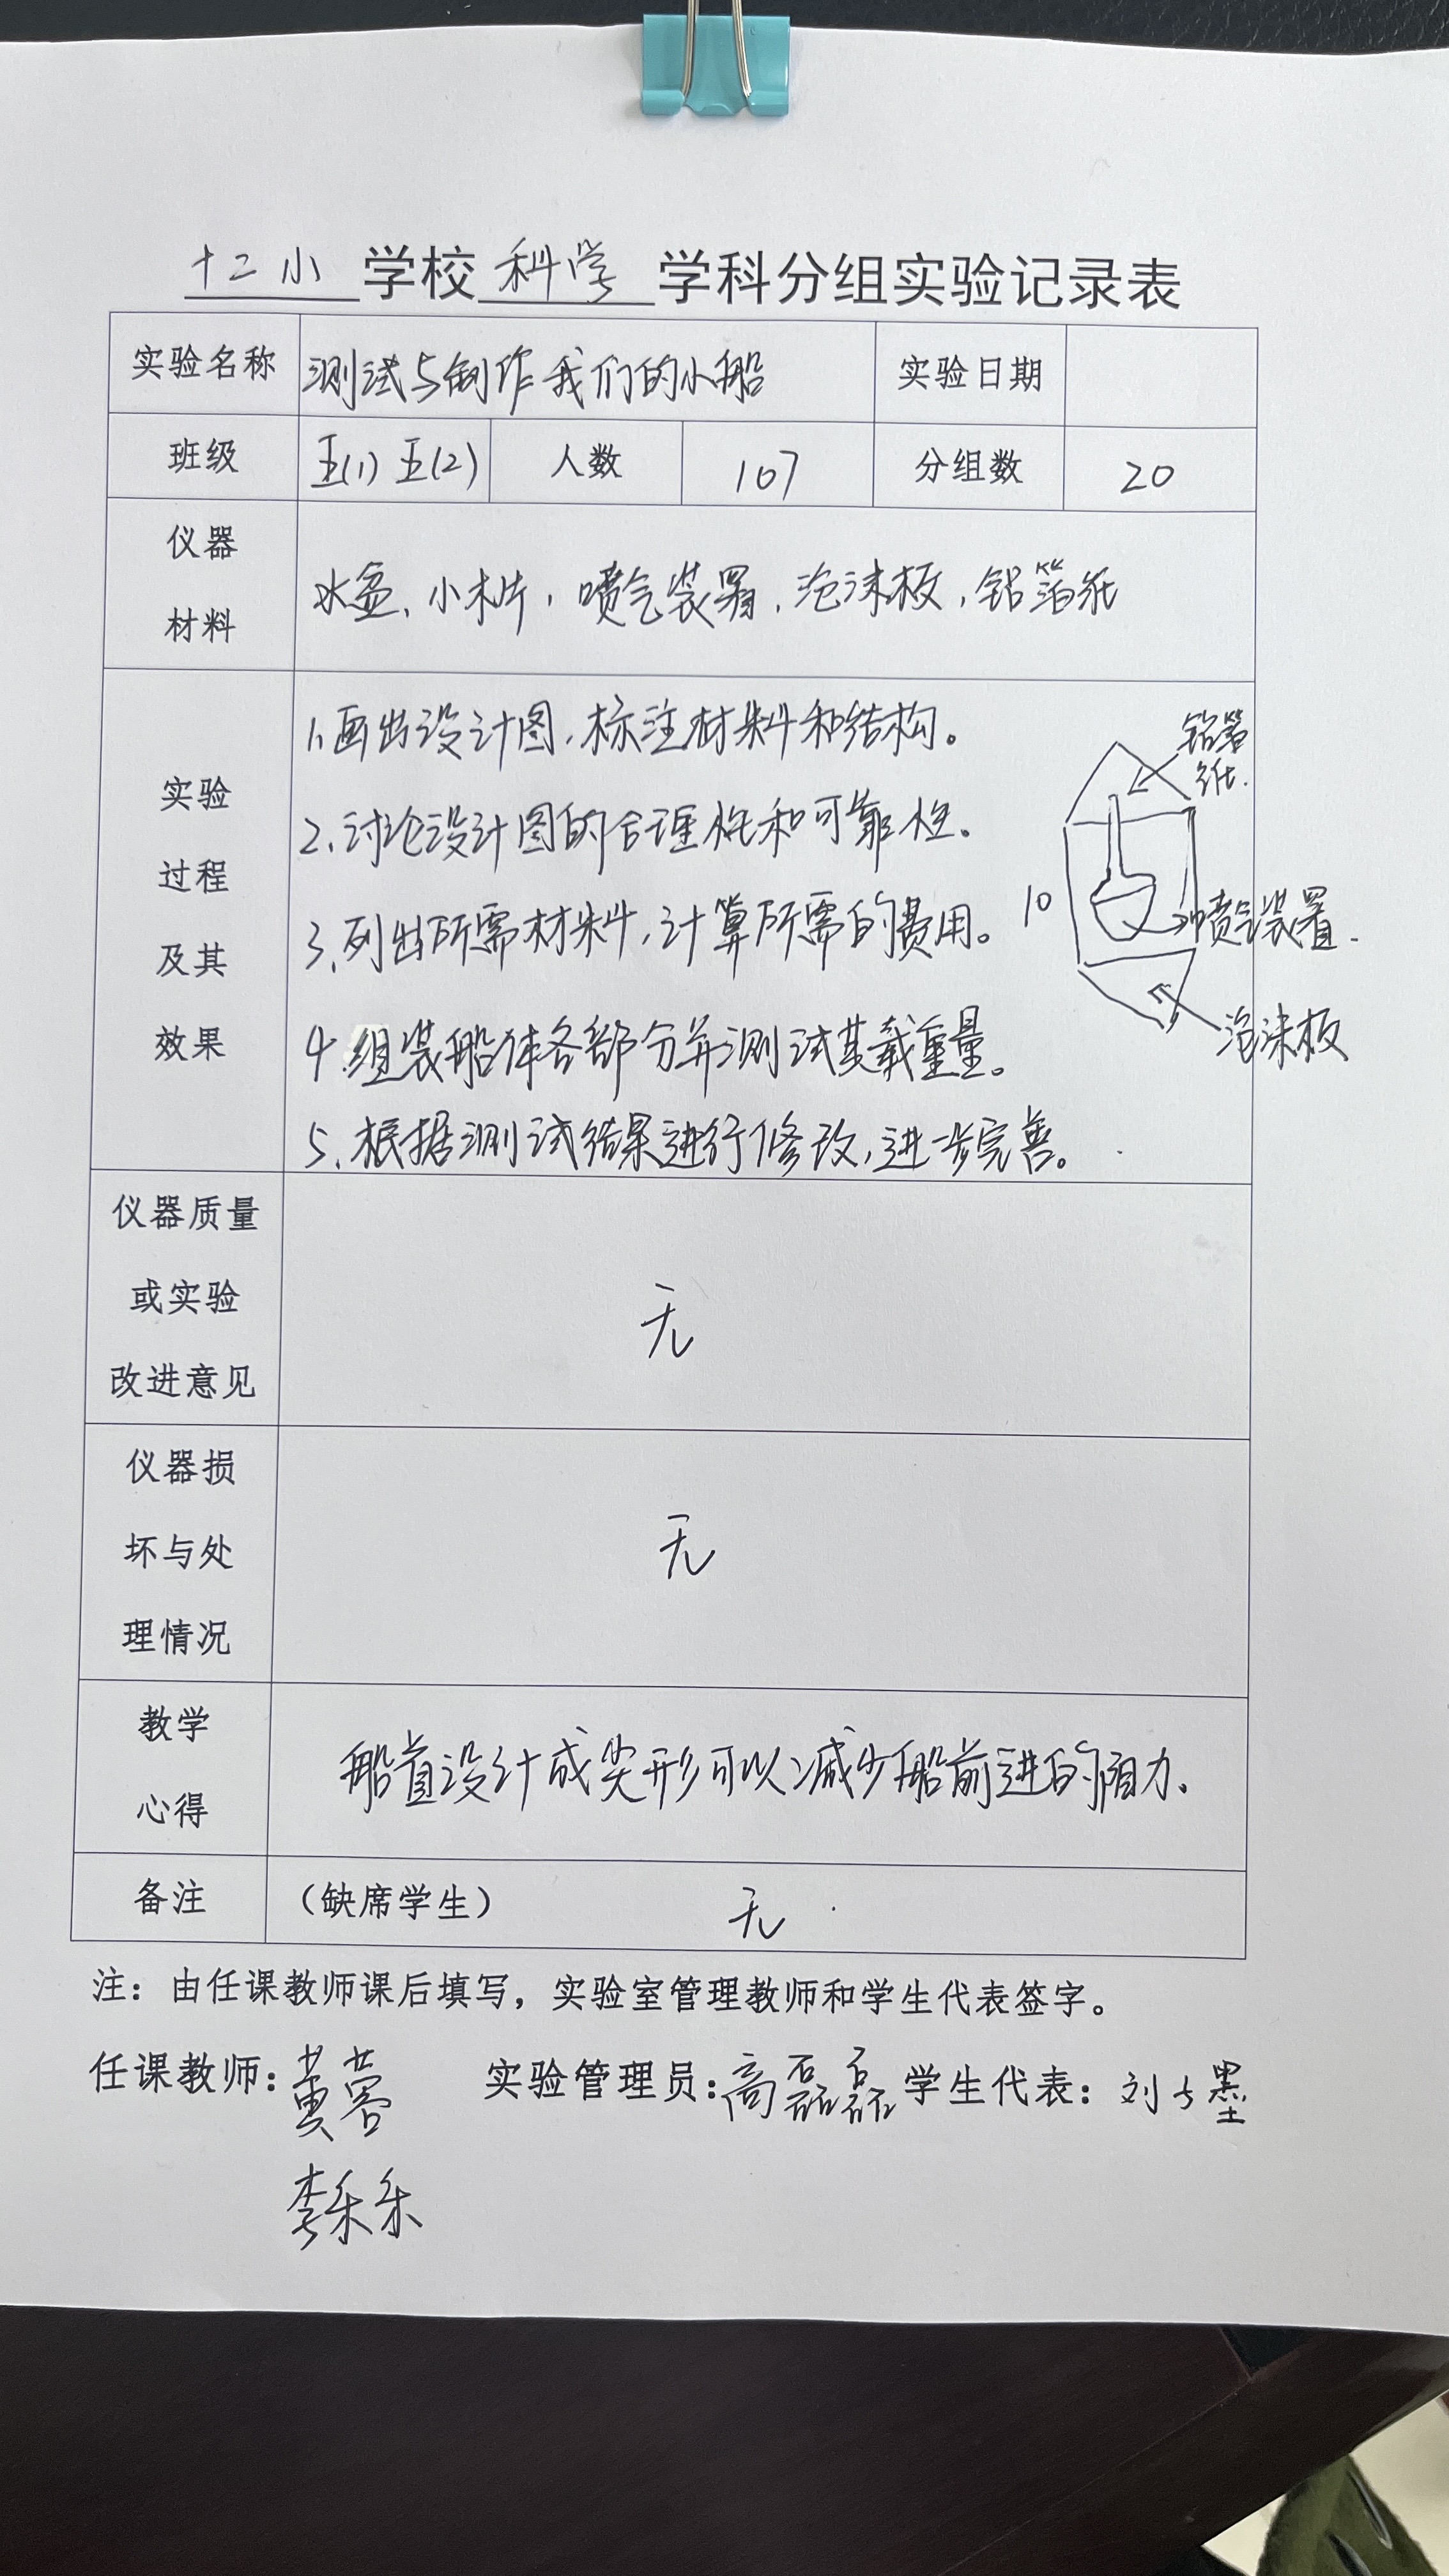 十二小学校科学学科分组实验记录表
实验名称 测试与制作我们的小船 实验日期
班级 五(1) 五(2) 人数 107 分组数 20
仪器
材料
水盆、小木片，喷气装置，泡沫板，铝箔纸
实验
过程
及其
效果
1、画出设计图，标注材料和结构。
2、讨论设计图的合理性和可靠性。
3、列出所需材料，计算所需的费用。
4.组装船体各部分并测试其载重量。
5、根据测试结果进行修改，进一步完善。
铝箔
纸.
10
喷气装置.
泡沫板
仪器质量
或实验
改进意见
无
仪器损
坏与处
理情况
无
教学
心得
船首设计成尖形可以减少船前进的阻力。
备注 （缺席学生） 无
注：由任课教师课后填写，实验室管理教师和学生代表签字。
任课教师：黄蓉 实验管理员：高磊磊 学生代表：刘墨
李乐乐